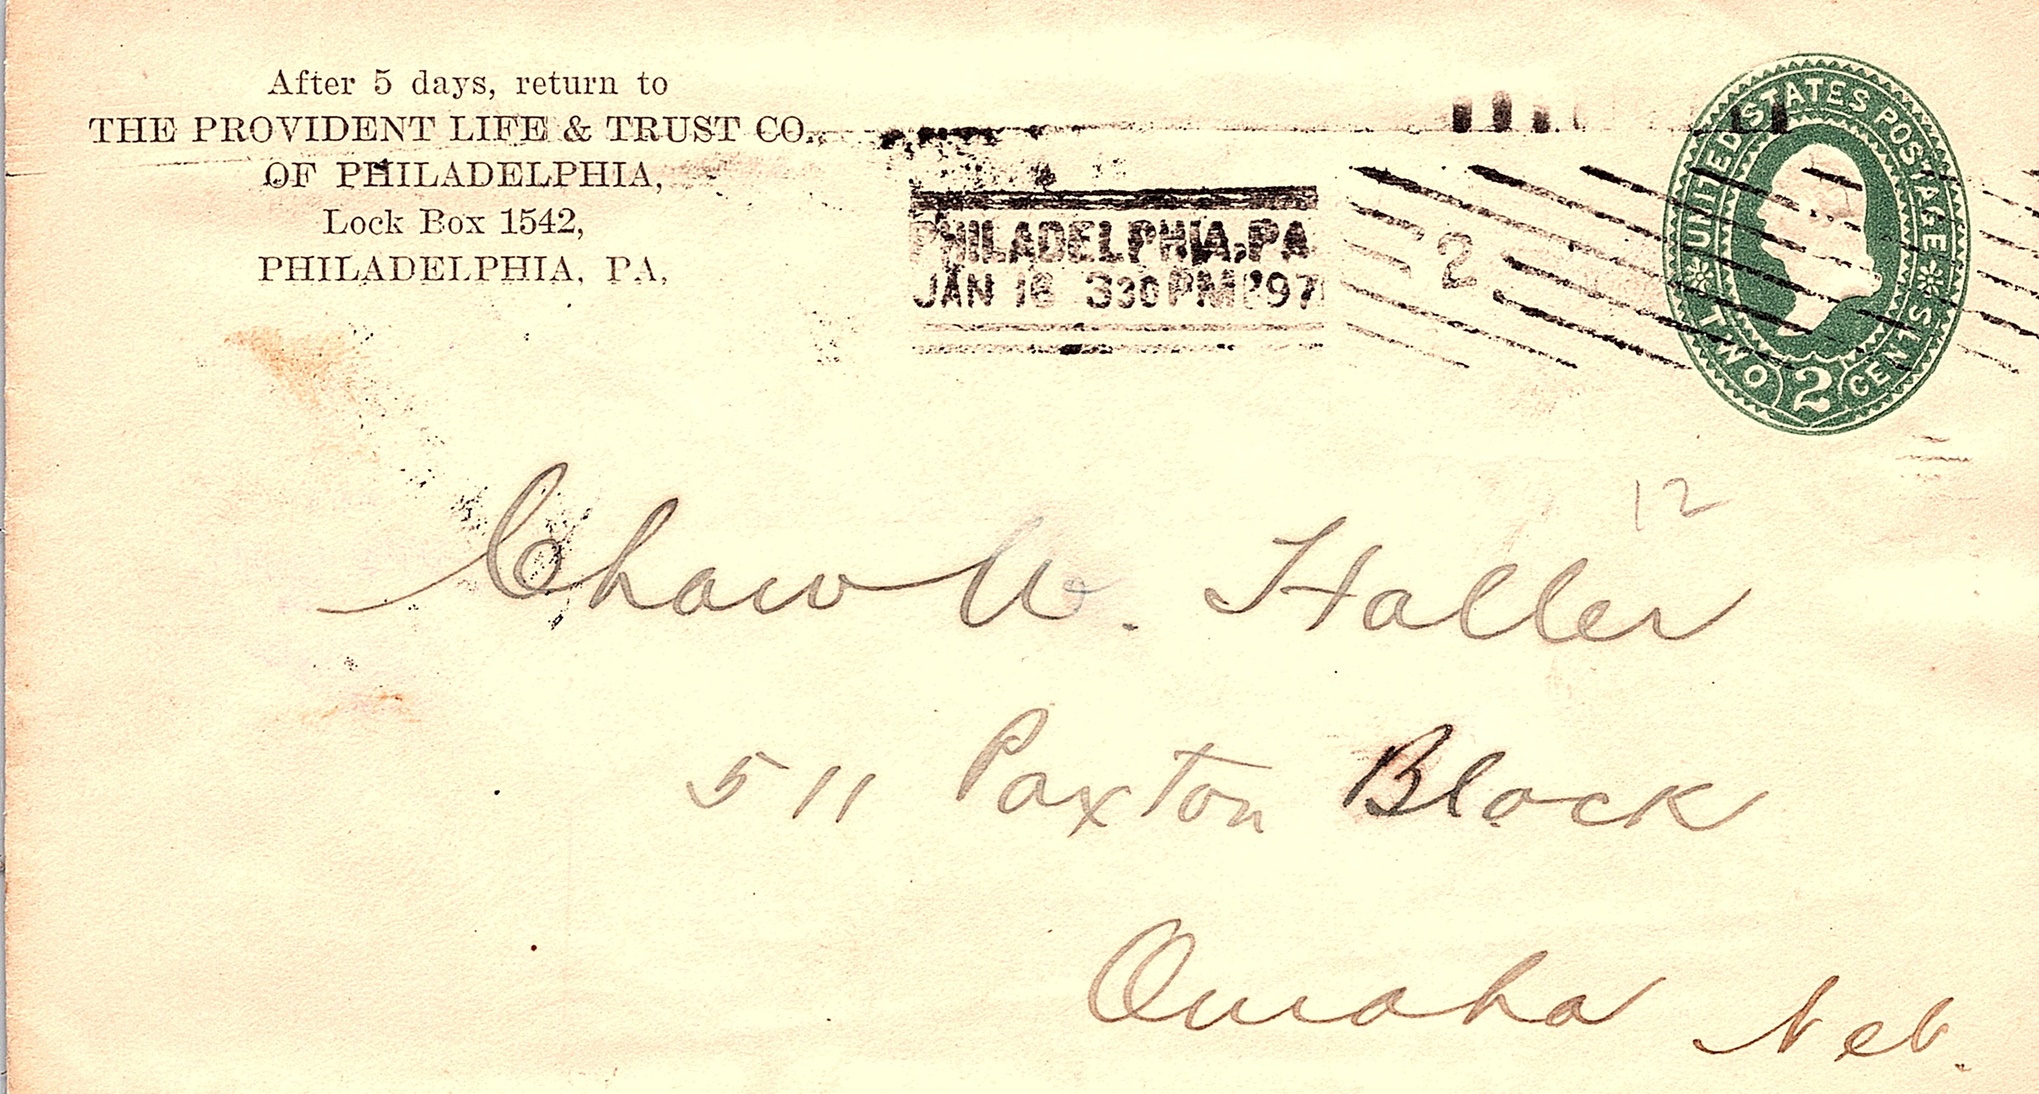 After 5 days, return to
THE PROVIDENT LIFE & TRUST CO.,
OF PHILADELPHIA,
Lock Box 1542,
PHILADELPHIA, PA.
PHILADELPHIA, PA
JAN 330 PM '97
2
UNITED STATES POSTAGE
TWO 2 CENTS
12
W. Haller
511 Paxton Block
Omaha Neb.